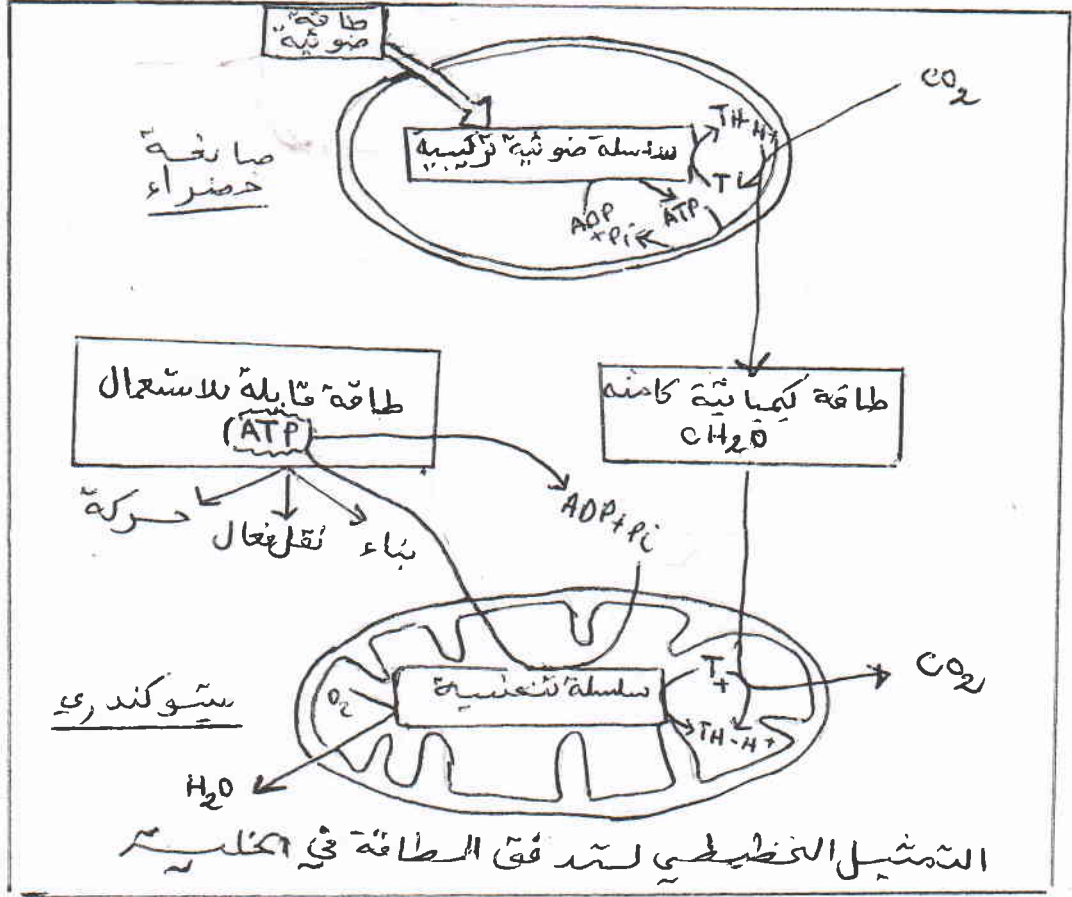 طاقة
ضوئية
CO2
صانعة
خضراء
سلسلة ضوئية تركيبية
TH H+
T
ADP
+Pi
ATP
طاقة قابلة للاستعمال
(ATP)
طاقة كيميائية كامنة
CH2O
حركة
نقل فعال
بناء
ADP+Pi
ميتوكندري
O2
سلسلة تنفسية
T+
TH-H+
CO2
H2O
التمثيل التخطيطي لتدفق الطاقة في الخلية